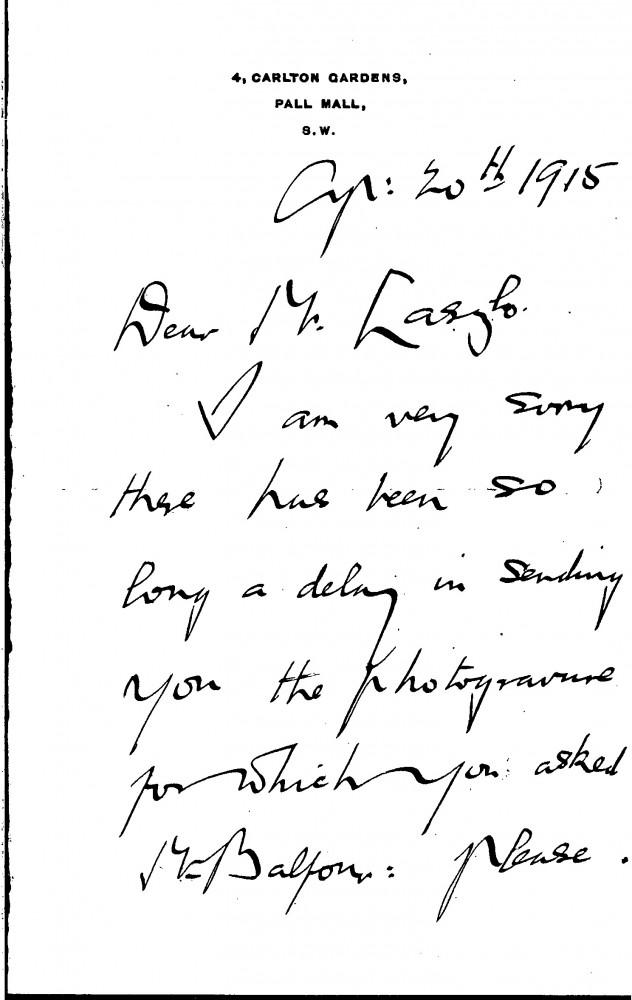 4, CARLTON GARDENS,
PALL MALL,
S.W.
Apr: 20th 1915
Dear Mr. Laszlo.
I am very sorry
there has been so
long a delay in sending
you the photogravure
for which you asked
Mr Balfour: please.